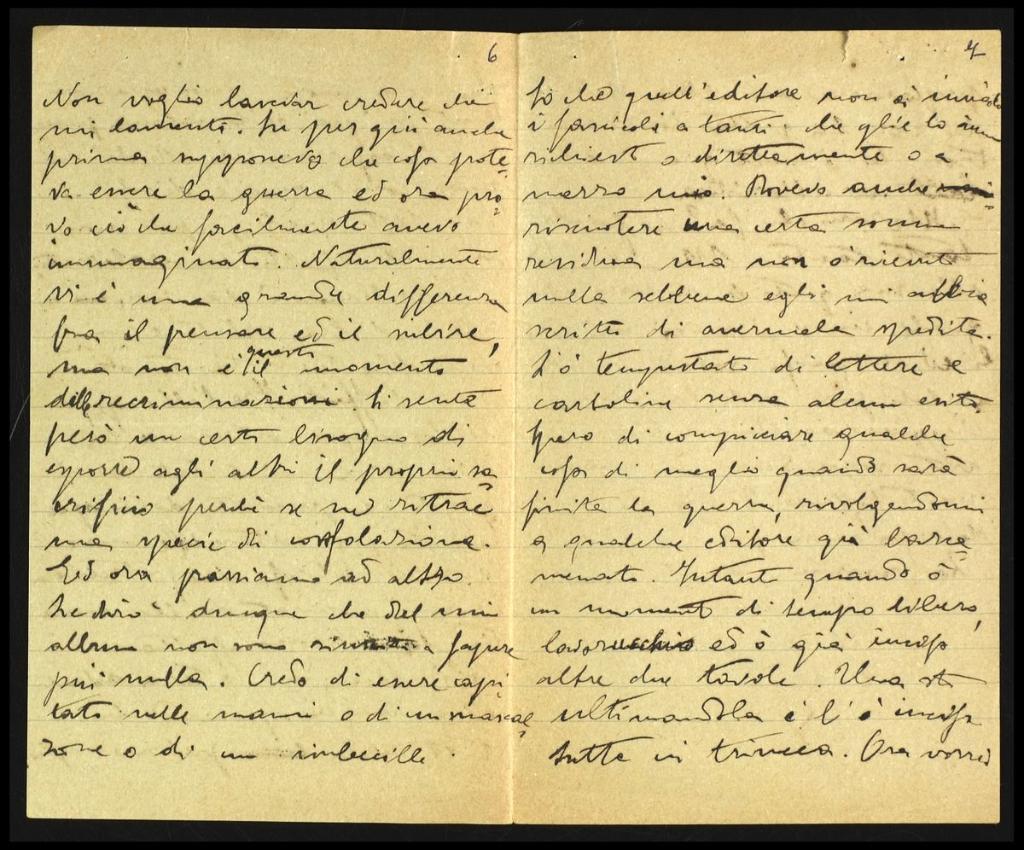 6
Non voglio lasciar credere che
mi lamento. Su per giù anche
prima supponevo che cosa pote-
va essere la guerra ed ora pro-
vo ciò che facilmente avevo
immaginato. Naturalmente
vi è una grande differenza
fra il pensare ed il subire,
ma non è questo il momento
delle recriminazioni. Si sente
però un certo bisogno di
esporre agli altri il proprio sa-
crificio perchè se ne ritrae
una specie di consolazione.
Ed ora passiamo ad altro.
Le dirò dunque che del mio
album non sono a sapere
più nulla. Credo di essere capi-
tato nelle mani o di un mascal-
zone o di un imbecille.
7
So che quell'editore non à inviato
i fascicoli a tanti che glie lo anno
richiesto o direttamente o a
mezzo mio. Dovevo anche
riscuotere una certa somma
residua ma non ò ricevuto
nulla sebbene egli mi abbia
scritto di avermela spedita.
L'ò tempestato di lettere e
cartoline senza alcun esito.
Spero di compicciare qualche
cosa di meglio quando sarà
finita la guerra, rivolgendomi
a qualche editore già
. Intanto quando ò
un momento di tempo libero,
lavorucchio ed ò già inciso
altre due tavole. Una sto
ultimandola e l'ò incisa
tutta in trincea. Ora vorrei